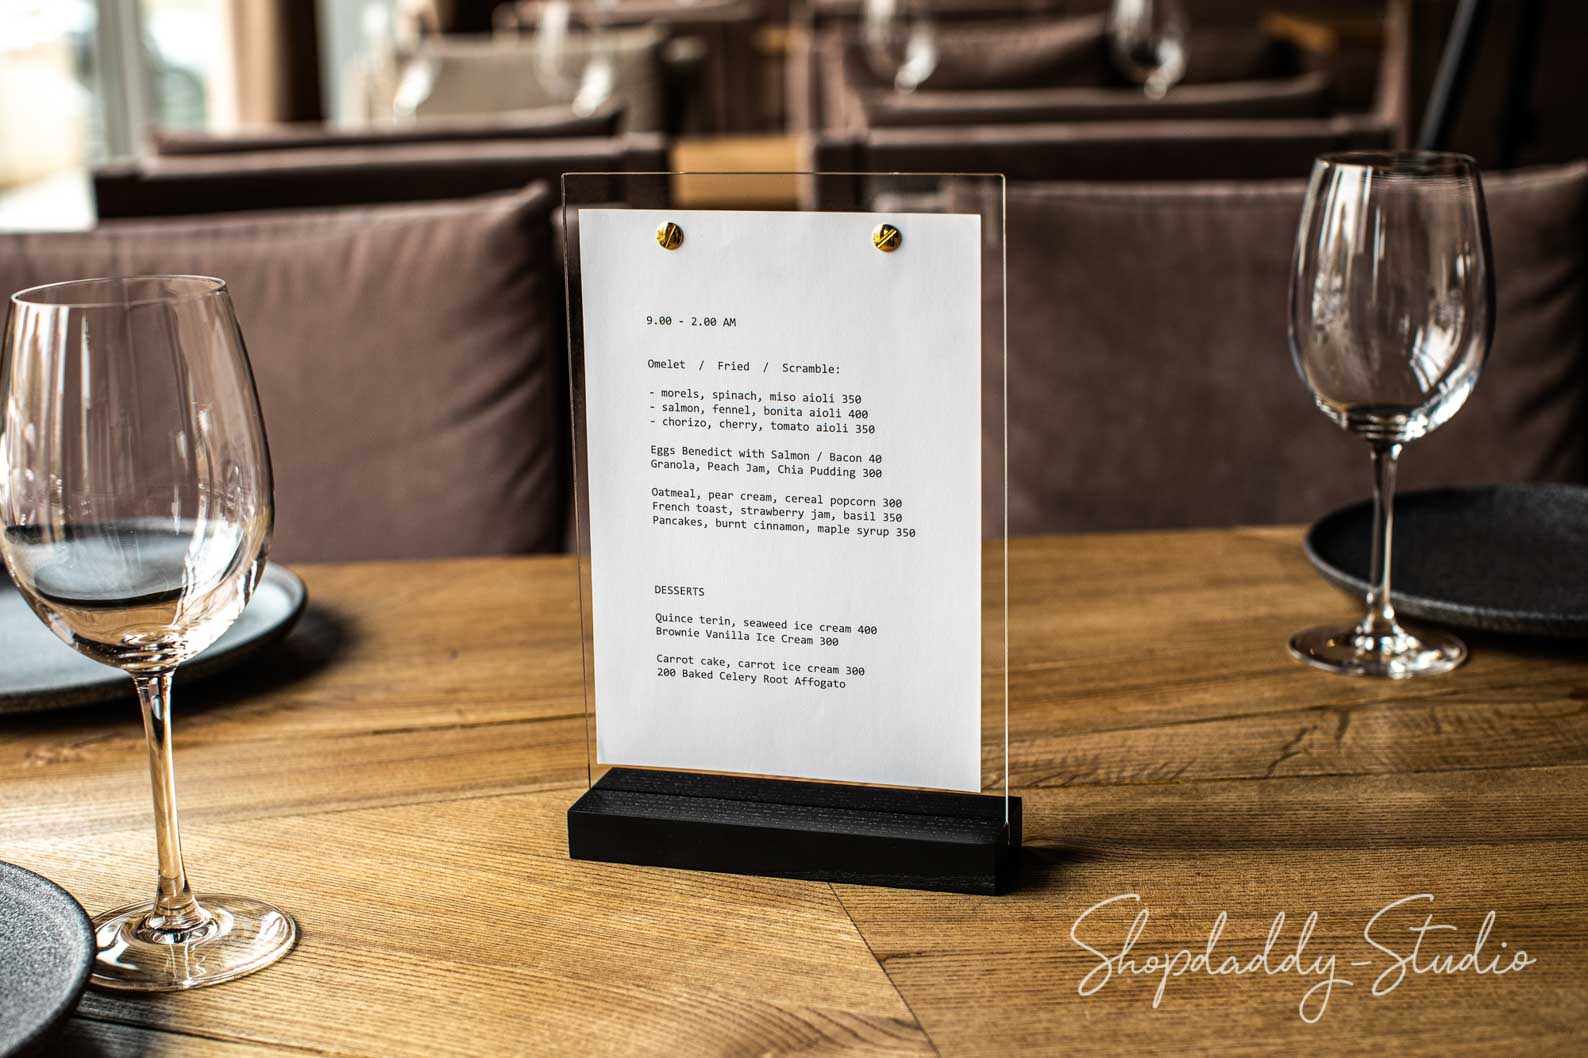 9.00 - 2.00 AM
Omelet / Fried / Scramble:
- morels, spinach, miso aioli 350
- salmon, fennel, bonita aioli 400
- chorizo, cherry, tomato aioli 350
Eggs Benedict with Salmon / Bacon 40
Granola, Peach Jam, Chia Pudding 300
Oatmeal, pear cream, cereal popcorn 300
French toast, strawberry jam, basil 350
Pancakes, burnt cinnamon, maple syrup 350
DESSERTS
Quince terin, seaweed ice cream 400
Brownie Vanilla Ice Cream 300
Carrot cake, carrot ice cream 300
200 Baked Celery Root Affogato
Shopdaddy-Studio